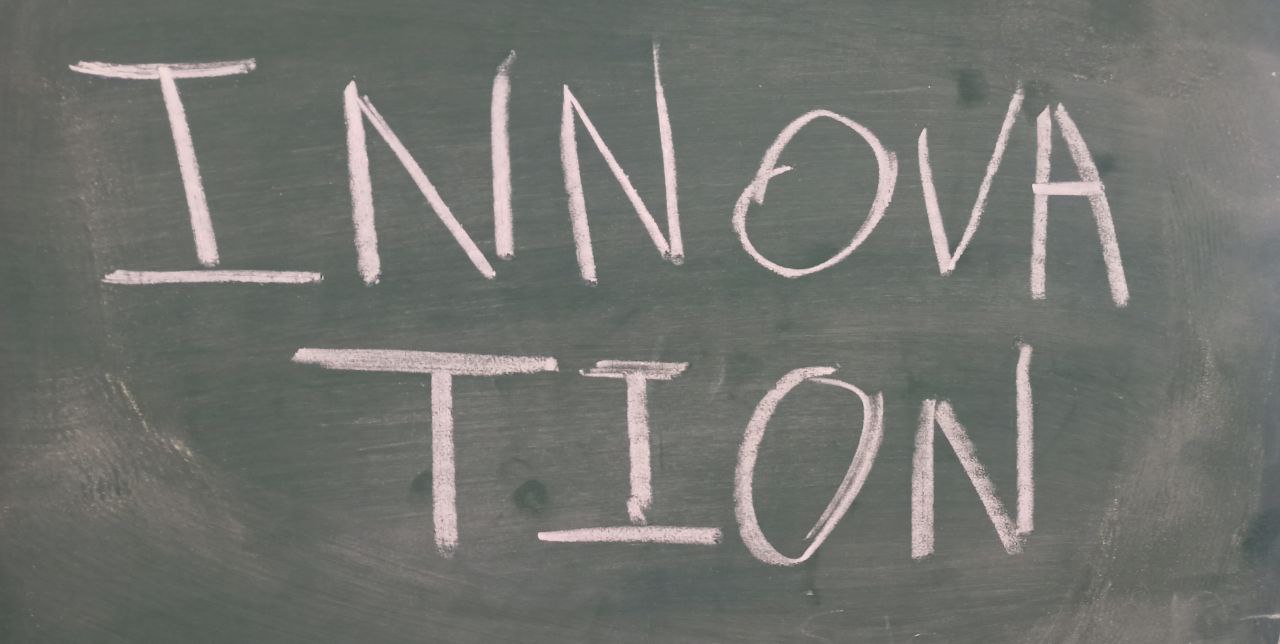 INNOVA
TION